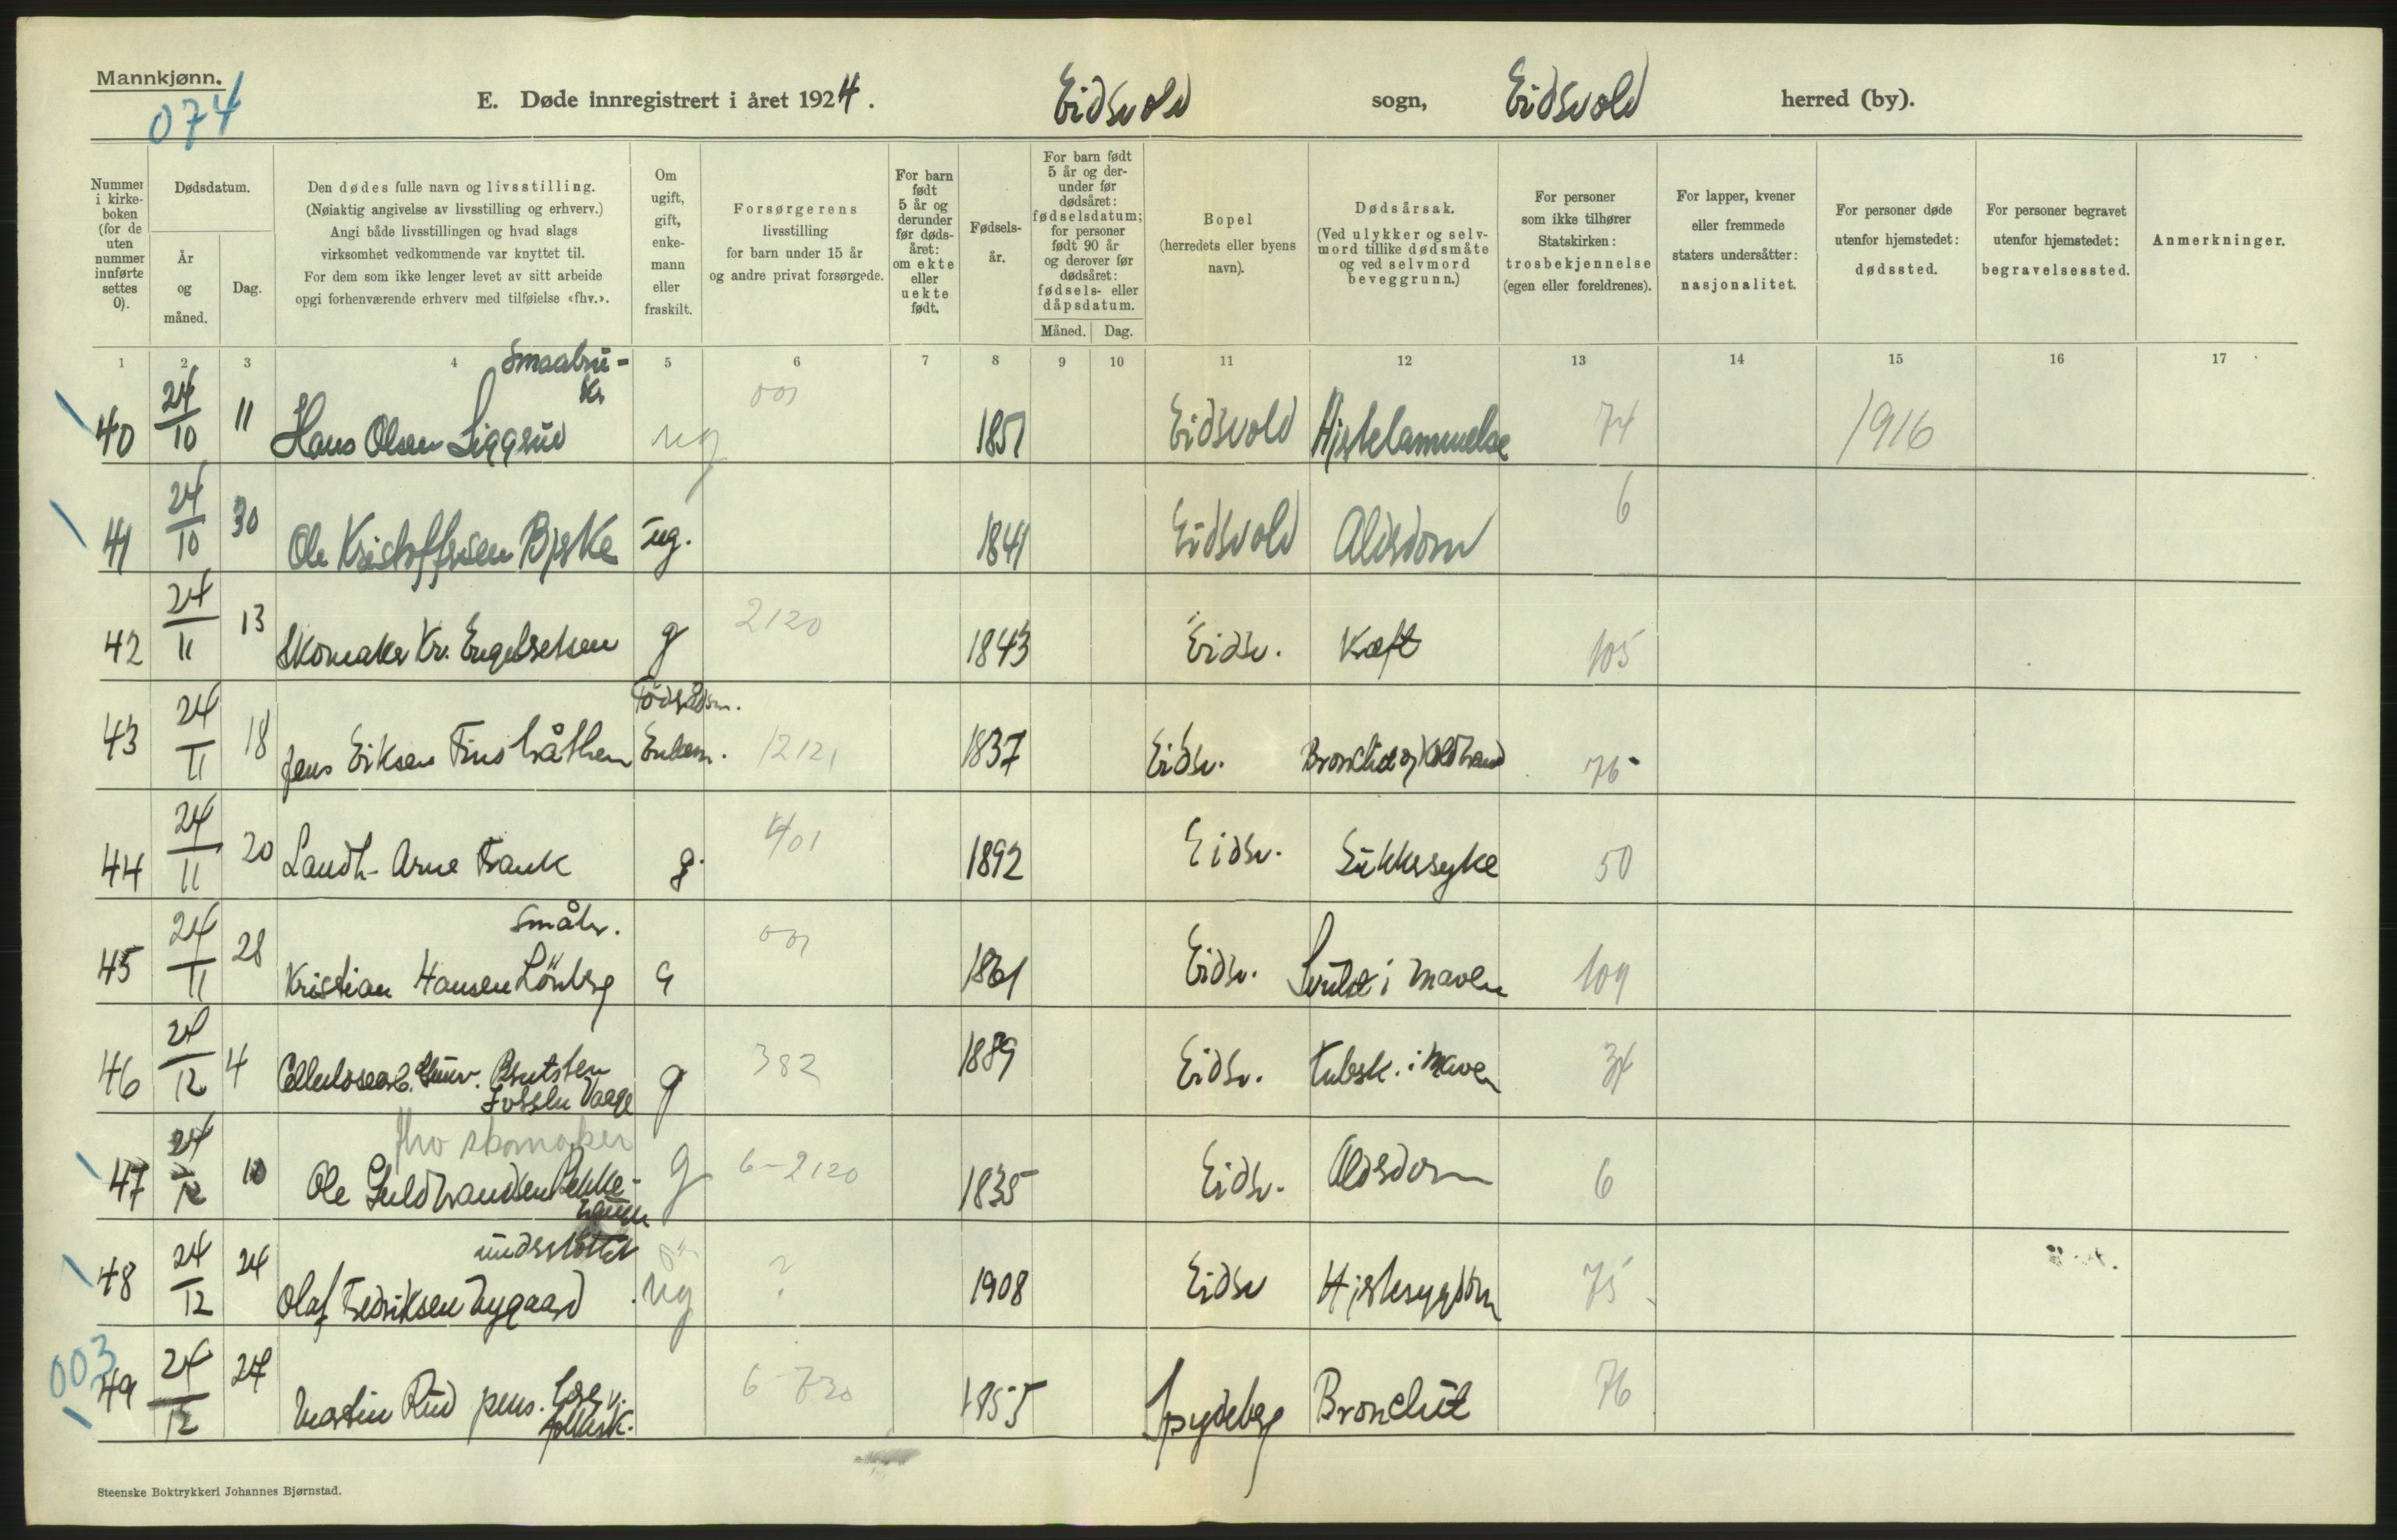 Mannkjønn.
074
E. Døde innregistrert i året 1924. Eidsvold sogn, Eidsvold herred (by).
Nummer i kirkeboken (for de uten nummer innførte settes 0).
Dødsdatum.
År og måned.
Dag.
Den dødes fulle navn og livsstilling.
(Nøiaktig angivelse av livsstilling og erhverv.)
Angi både livsstillingen og hvad slags
virksomhet vedkommende var knyttet til.
For dem som ikke lenger levet av sitt arbeide
opgi forhenværende erhverv med tilføielse «fhv.».
Om ugift, gift, enkemann eller fraskilt.
Forsørgerens
livsstilling
for barn under 15 år
og andre privat forsørgede.
For barn født 5 år og derunder før dødsåret: om ekte eller uekte født.
Fødselsår.
For barn født 5 år og derunder før dødsåret: fødselsdatum; for personer født 90 år og derover før dødsåret: fødsels- eller dåpsdatum.
Måned. Dag.
Bopel
(herredets eller byens
navn).
Dødsårsak.
(Ved ulykker og selvmord tillike dødsmåte og ved selvmord beveggrunn.)
For personer
som ikke tilhører
Statskirken:
trosbekjennelse
(egen eller foreldrenes).
For lapper, kvener
eller fremmede
staters undersåtter:
nasjonalitet.
For personer døde
utenfor hjemstedet:
dødssted.
For personer begravet
utenfor hjemstedet:
begravelsessted.
Anmerkninger.
1 2 3 4 5 6 7 8 9 10 11 12 13 14 15 16 17
Smaabru-
ker
40 24/10 11 Hans Olsen Liggerud ug 001 1851 Eidsvold Hjertelammelse 74 1916
41 24/10 30 Ole Kristoffersen Bjerke ug. 1841 Eidsvold Alderdom 6
42 24/11 13 Skomaker Kr. Engebretsen g 2120 1843 Eidsv. Kræft 105
43 24/11 18 Jens Eriksen Finsbråthen Enkem. 12121 1837 Eidsv. Bronchit og Koldbrand 76
44 24/11 20 Landh. Arne Frank g. 401 1892 Eidsv. Sukkersyke 50
Småbr.
45 24/11 28 Kristian Hansen Lönberg G 001 1861 Eidsv. Svulst i maven 109
46 24/12 4 Cellulosearb. Berntsen g 382 1889 Eidsv. Tuberk. i maven 34
fhv skomaker
47 24/12 10 Ole Guldbrandsen Bekke- g 6-2120 1835 Eidsv. Alderdom 6
haugen
understöttet
48 24/12 24 Olaf Fredriksen Nygaard ug ? 1908 Eidsv Hjertesygdom 75
003
49 24/12 24 Martin Rud pens. 6-730 1855 Spydeberg Bronchit 76
Steenske Boktrykkeri Johannes Bjørnstad.